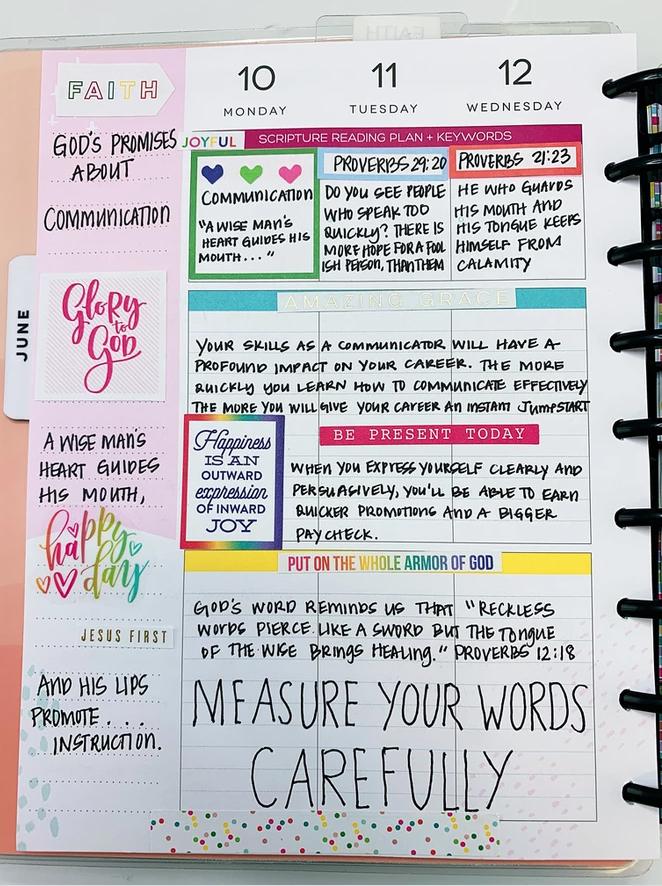 FAITH
10
11
12
MONDAY
TUESDAY
WEDNESDAY
JUNE
FAITH
GOD'S PROMISES
ABOUT
COMMUNICATION
Glory
to
God
A WISE MAN'S
HEART GUIDES
HIS MOUTH,
happy
day
JESUS FIRST
AND HIS LIPS
PROMOTE . . .
INSTRUCTION.
JOYFUL
SCRIPTURE READING PLAN + KEYWORDS
COMMUNICATION
"A WISE MAN'S
HEART GUIDES HIS
MOUTH..."
PROVERBS 29:20
DO YOU SEE PEOPLE
WHO SPEAK TOO
QUICKLY? THERE IS
MORE HOPE FOR A FOOL
ISH PERSON, THAN THEM
PROVERBS 21:23
HE WHO GUARDS
HIS MOUTH AND
HIS TONGUE KEEPS
HIMSELF FROM
CALAMITY
AMAZING GRACE
YOUR SKILLS AS A COMMUNICATOR WILL HAVE A
PROFOUND IMPACT ON YOUR CAREER. THE MORE
QUICKLY YOU LEARN HOW TO COMMUNICATE EFFECTIVELY
THE MORE YOU WILL GIVE YOUR CAREER AN INSTANT JUMPSTART
Happiness
IS AN
OUTWARD
expression
OF INWARD
JOY
BE PRESENT TODAY
WHEN YOU EXPRESS YOURSELF CLEARLY AND
PERSUASIVELY, YOU'LL BE ABLE TO EARN
QUICKER PROMOTIONS AND A BIGGER
PAYCHECK.
PUT ON THE WHOLE ARMOR OF GOD
GOD'S WORD REMINDS US THAT "RECKLESS
WORDS PIERCE LIKE A SWORD BUT THE TONGUE
OF THE WISE BRINGS HEALING." PROVERBS 12:18
MEASURE YOUR WORDS
CAREFULLY